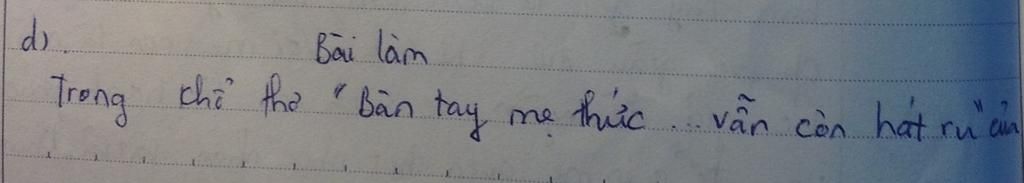 d).
Bài làm
Trong khổ thơ "Bàn tay mẹ thức... vẫn còn hát ru" của